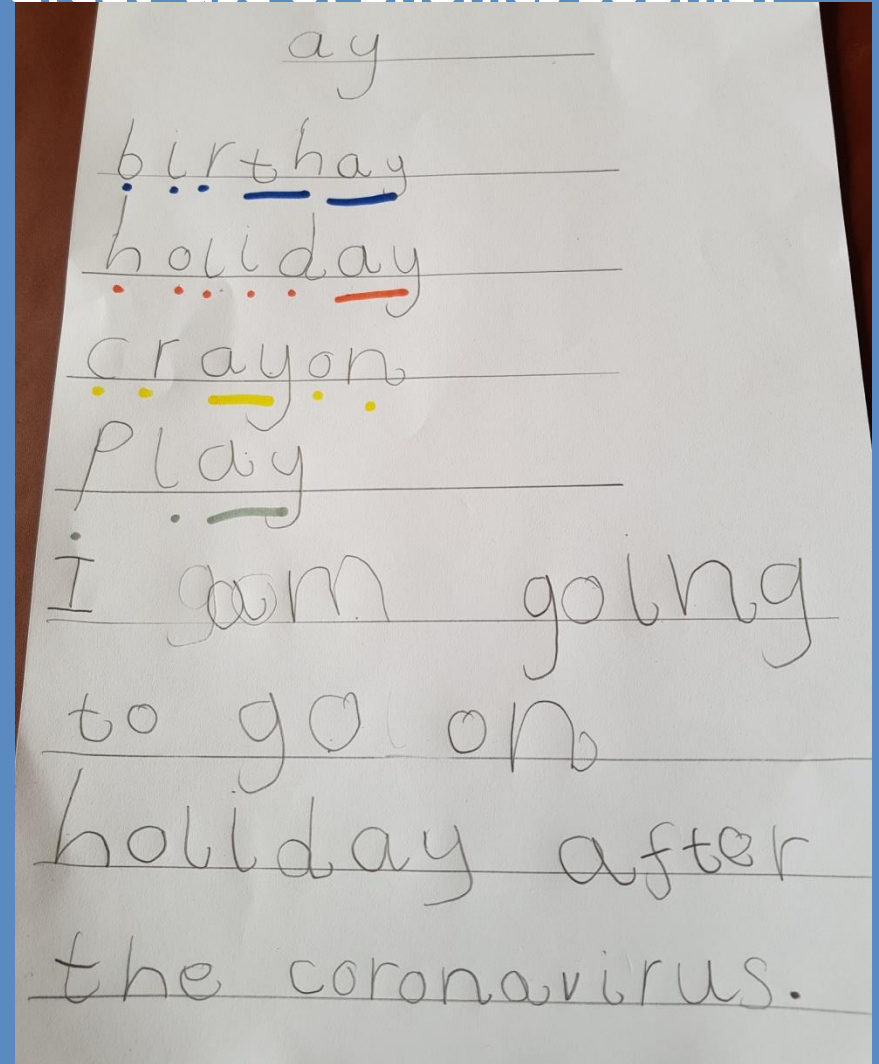 ay
birthay
holiday
crayon
Play
I am going
to go on
holiday after
the coronavirus.